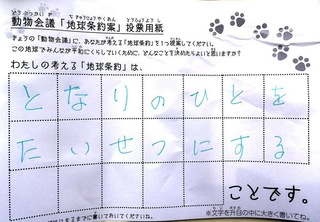 動物会議「地球条約案」投票用紙
きょうの「動物会議」に、あなたが考える「地球条約」を1つ提案してください。
この地球でみんなが平和にくらしていくために、どんなことを決めたらよいと思いますか?
わたしの考える「地球条約」は、
となりのひとを
たいせつにする
ことです。
※文字を升目の中に大きく書いてね。